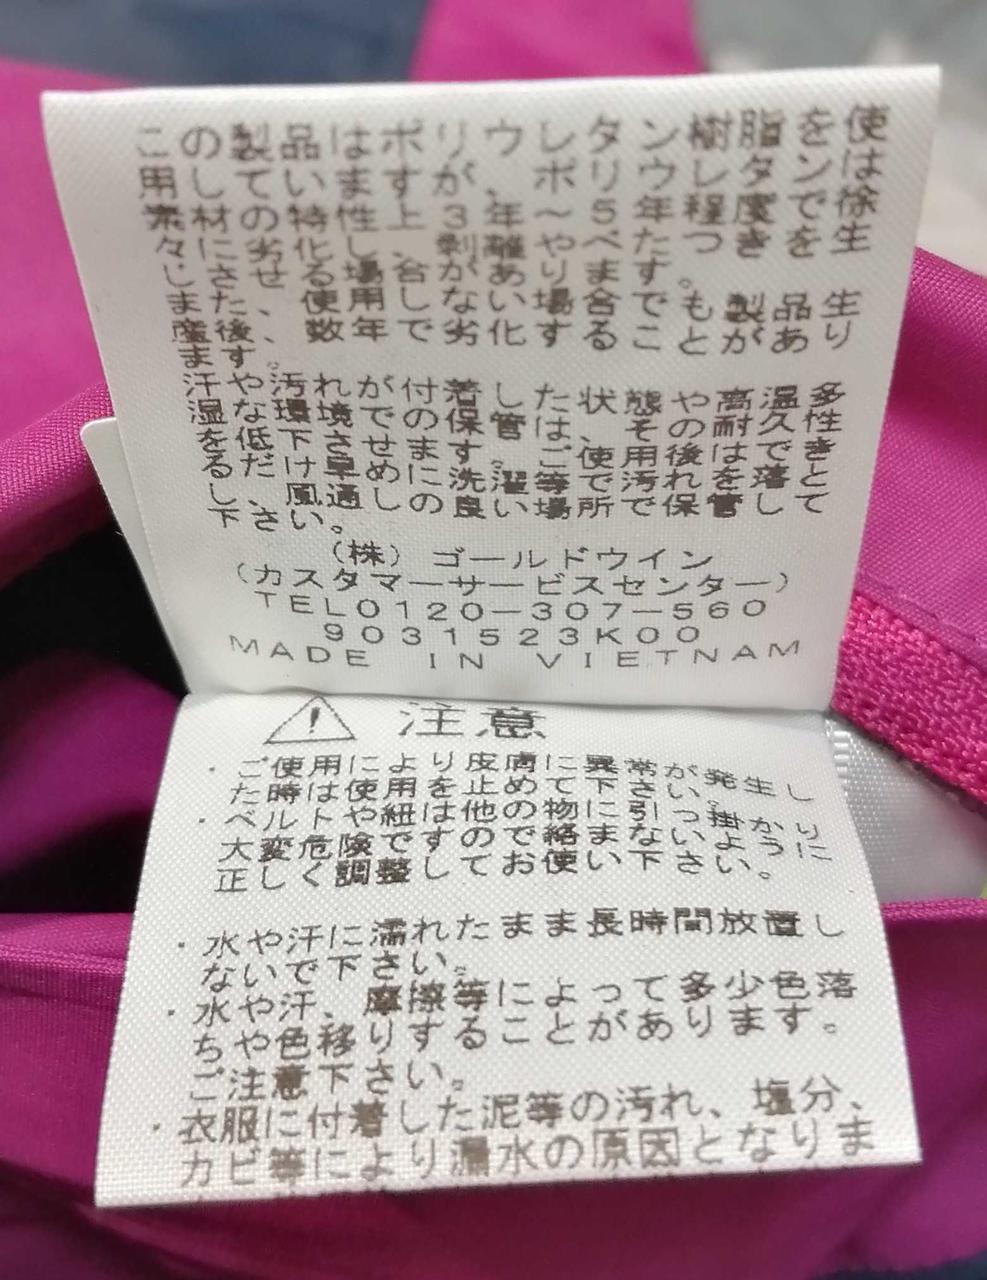 この製品はポリウレタン樹脂を使
用していますが、ポリウレタンは
素材の特性上3年～5年程度で徐
々に劣化し、剥離やべたつきを生
じさせる場合があります。
また、使用しない場合でも製品生
産後、数年で劣化することがあり
ます。
汗や汚れが付着した状態や高温多
湿な環境での保管は、その耐久性
を低下させます。ご使用後はでき
るだけ早めに洗濯等で汚れを落と
し、風通しの良い場所で保管して
下さい。
(株)ゴールドウイン
(カスタマーサービスセンター)
TEL0120-307-560
9031523K00
MADE IN VIETNAM
注意
・ご使用により皮膚に異常が発生し
た時は使用を止めて下さい。
・ベルトや紐は他の物に引っ掛かり
大変危険ですので絡まないように
正しく調整してお使い下さい。
・水や汗に濡れたまま長時間放置し
ないで下さい。
・水や汗、摩擦等によって多少色落
ちや色移りすることがあります。
ご注意下さい。
・衣服に付着した泥等の汚れ、塩分、
カビ等により漏水の原因となりま